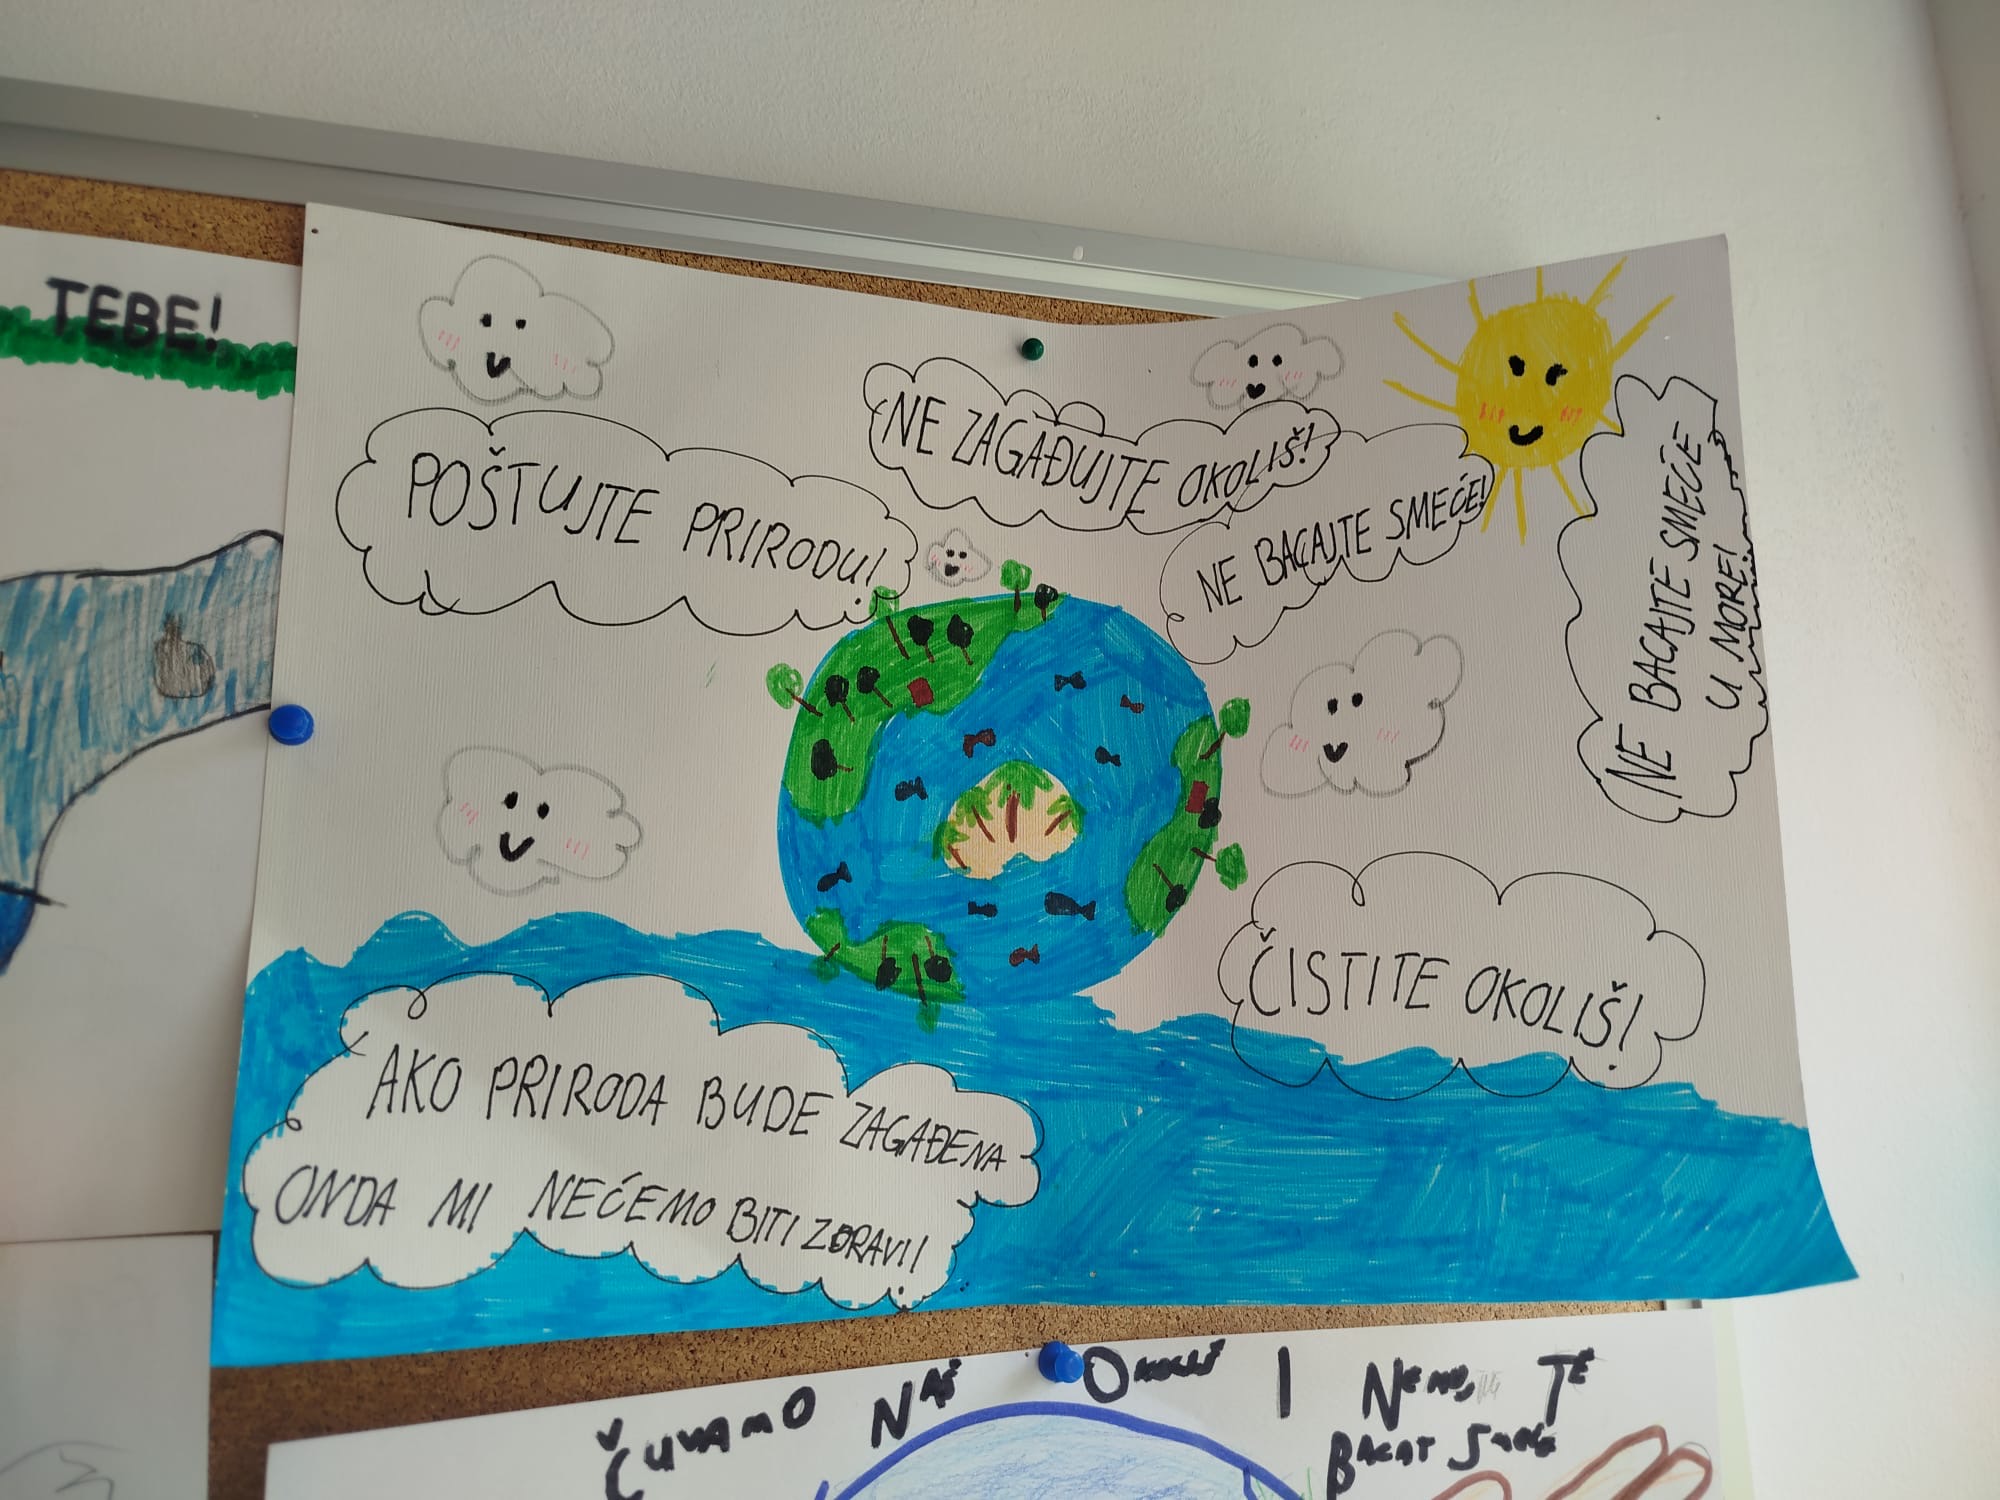 TEBE!
POŠTUJTE PRIRODU!
NE ZAGAĐUJTE OKOLIŠ!
NE BACAJTE SMEĆE!
NE BACAJTE SMEĆE
U MORE!
ČISTITE OKOLIŠ!
AKO PRIRODA BUDE ZAGAĐENA
ONDA MI NEĆEMO BITI ZDRAVI!
ČUVAMO NAŠ OKOLIŠ I
BACAT SMEĆE